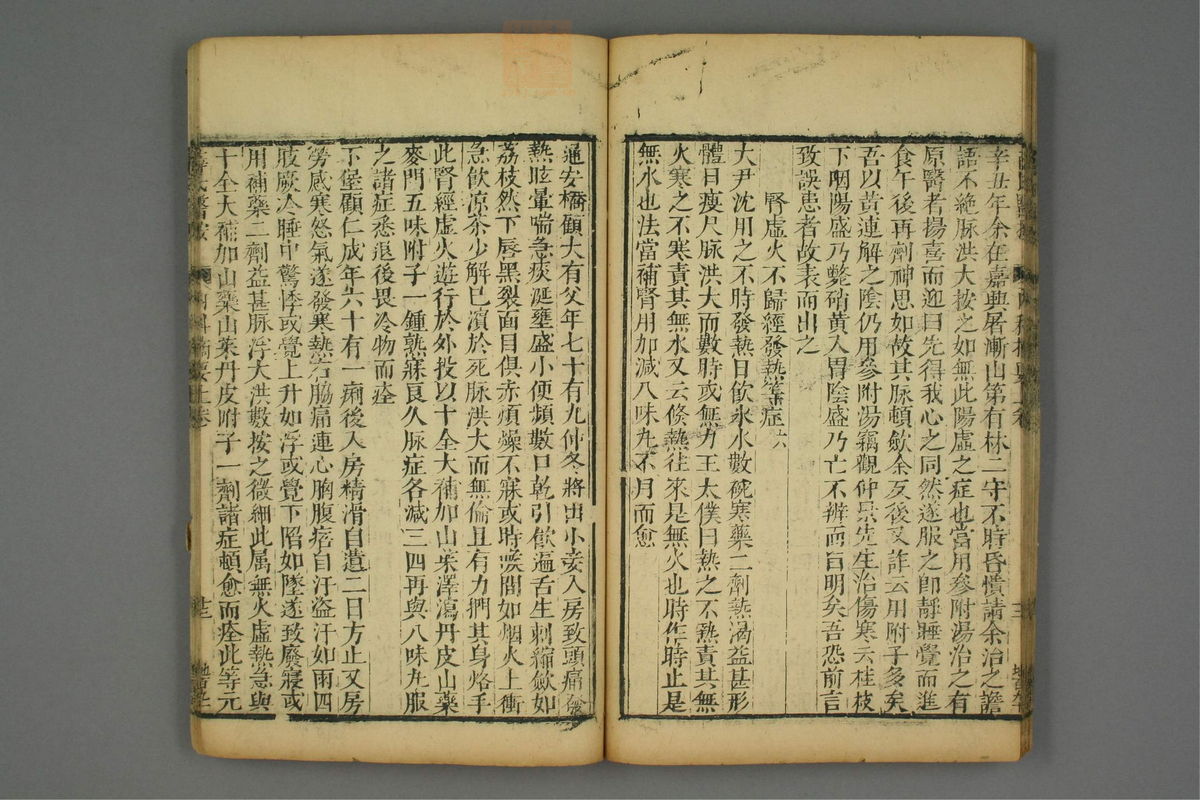 辛丑年余在嘉興屠漸山第有林二守不時昏憒請余治之譫
語不絶脉洪大按之如無此陽虛之症也當用參附湯治之有
原醫者揚喜而迎曰先得我心之同然遂服之即靜睡覺而進
食午後再劑神思如故其脉頓歛余亙後又詐云用附子多矣
吾以黄連解之陰仍用參附湯竊觀仲景先生治傷寒云桂枝
下咽陽盛乃斃硝黄入胃陰盛乃亡不辨而自明矣吾恐前言
致誤患者故表而出之
腎虛火不歸經發熱等症六
大尹沈用之不時發熱日飲氷水數碗寒藥二劑熱渴益甚形
體日瘦尺脉洪大而數時或無力王太僕曰熱之不熱責其無
火寒之不寒責其無水又云倐熱往來是無火也時作時止是
無水也法當補腎用加減八味丸不月而愈
通安橋顧大有父年七十有九仲冬將出小妾入房致頭痛發
熱眩暈喘急痰涎壅盛小便頻數口乾引飲遍舌生刺縮歛如
荔枝然下唇黑裂面目俱赤煩燥不寐或時喉間如烟火上衝
急飲凉茶少解已濱於死脉洪大而無倫且有力捫其身烙手
此腎經虛火遊行於外投以十全大補加山茱澤瀉丹皮山藥
麥門五味附子一鍾熟寐良久脉症各減三四再與八味丸服
之諸症悉退後畏冷物而痊
下堡顧仁成年六十有一痢後入房精滑自遺二日方止又房
勞感寒怒氣遂發寒熱右脇痛連心胸腹痞自汗盜汗如雨四
肢厥冷睡中驚悸或覺上升如浮或覺下陷如墜遂致廢寢或
用補藥二劑益甚脉浮大洪數按之微細此属無火虛熱急與
十全大補加山藥山茱丹皮附子一劑諸症頓愈而痊此等元